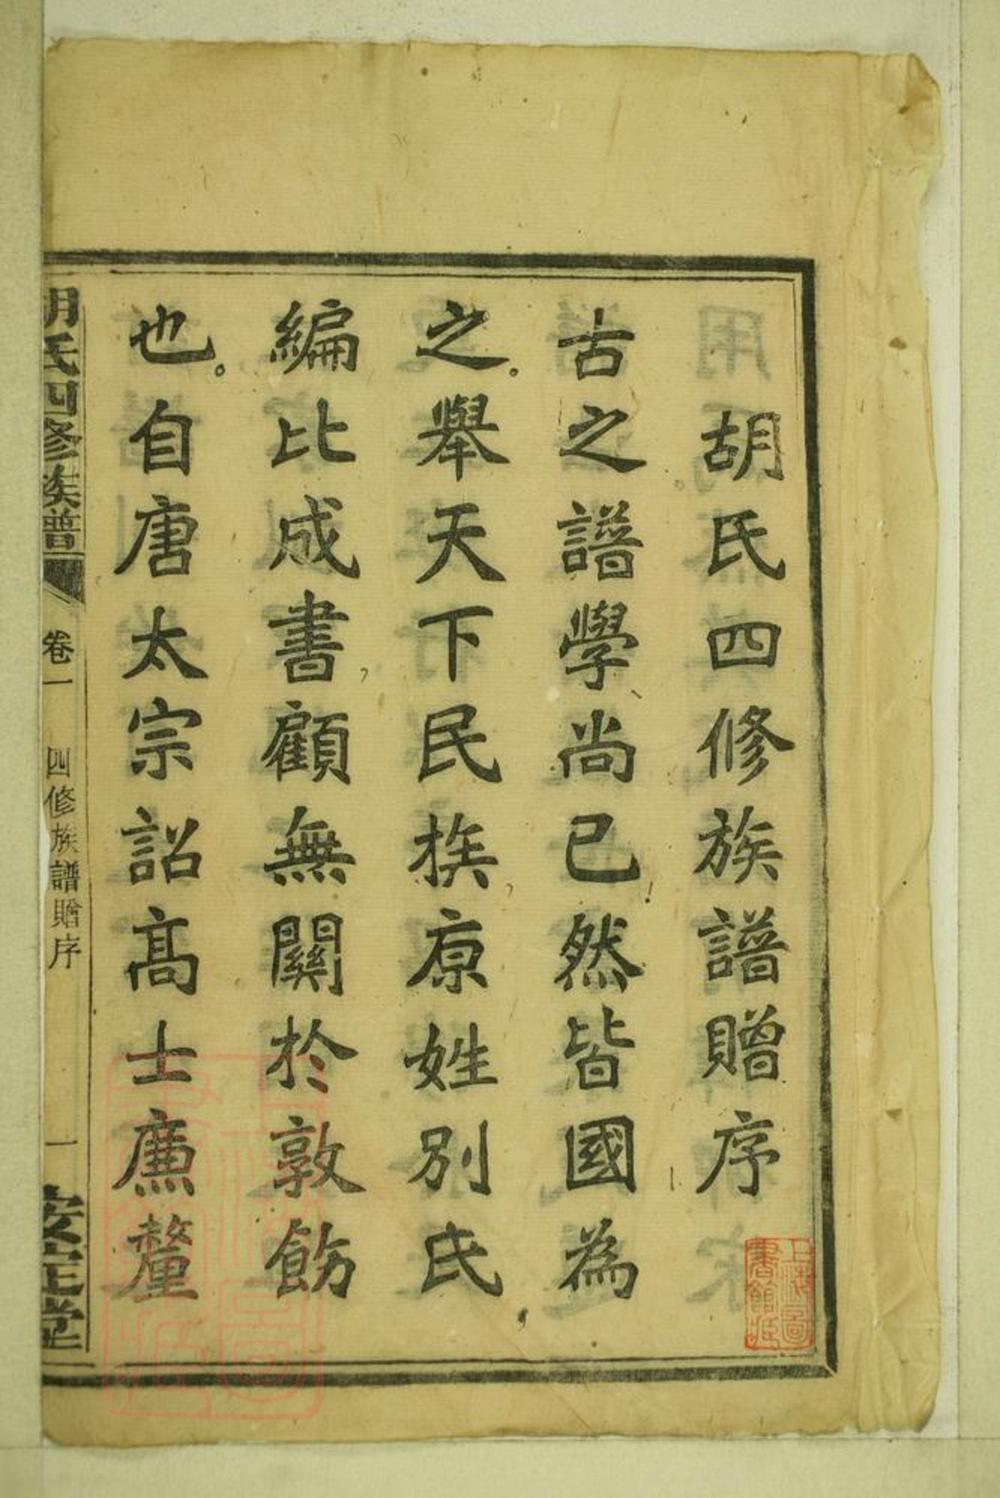 胡氏四修族譜贈序
古之譜學尚已然皆國為
之。舉天下民族原姓別氏
編比成書顧無關於敦飭
也。自唐太宗詔髙士廉釐
胡氏四修族譜
卷一
四修族譜贈序
一
安定堂
上海圖
書館藏